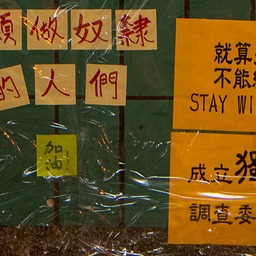 願做奴隸
的人們
加油
就算
不能
STAY WI
成立獨
調查委